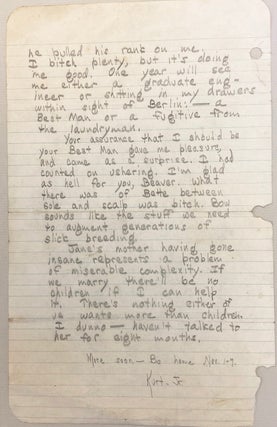 he pulled his rank on me.
I bitch plenty, but it's doing
me good. One year will see
me either a graduate eng-
ineer or shitting in my drawers
within sight of Berlin — a
Best Man or a fugitive from
the laundryman.
Your assurance that I should be
your Best Man gave me pleasure,
and came as surprise. I had
counted on ushering. I'm glad
as hell for you, Beaver. What
there was of Bette between
sole and scalp was bitch. Bow
sounds like the stuff we need
to augment generations of
slick breeding.
Jane's mother having gone
insane represents a problem
of miserable complexity. If
we marry there'll be no
children if I can help
it. There's nothing either of
us wants more than children.
I dunno — haven't talked to
her for eight months.
More soon — Be home Nov. 1-9.
Kurt - Jr